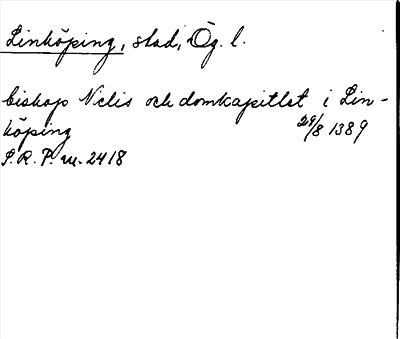 Linköping, stad, Ög. l.
biskop Nclis och domkapitlet i Lin-
köping 29/8 1389
S. R. P. nr. 2418